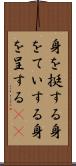 身を挺する身
をていする身
を呈する((